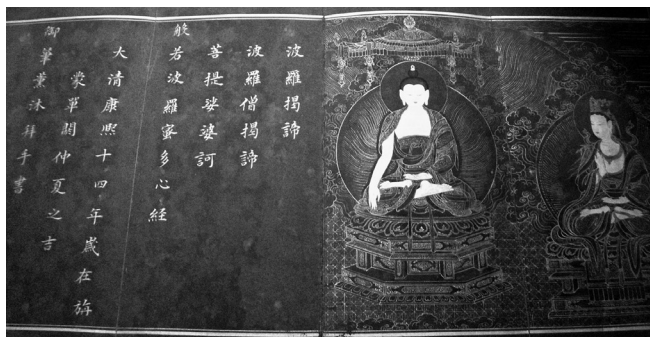 波羅揭諦
波羅僧揭諦
菩提娑婆訶
般若波羅蜜多心經
大清康熙十四年歲在旃
蒙單閼仲夏之吉
御筆薰沐拜手書